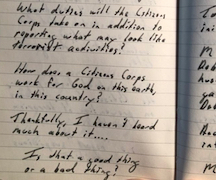 What duties will the Citizen
Corps take on in addition to
reporting what may look like
terrorist activities?
How does a Citizens Corps
work for God on this earth,
in this country?
Thankfully, I haven't heard
much about it....
Is that a good thing
or a bad thing?